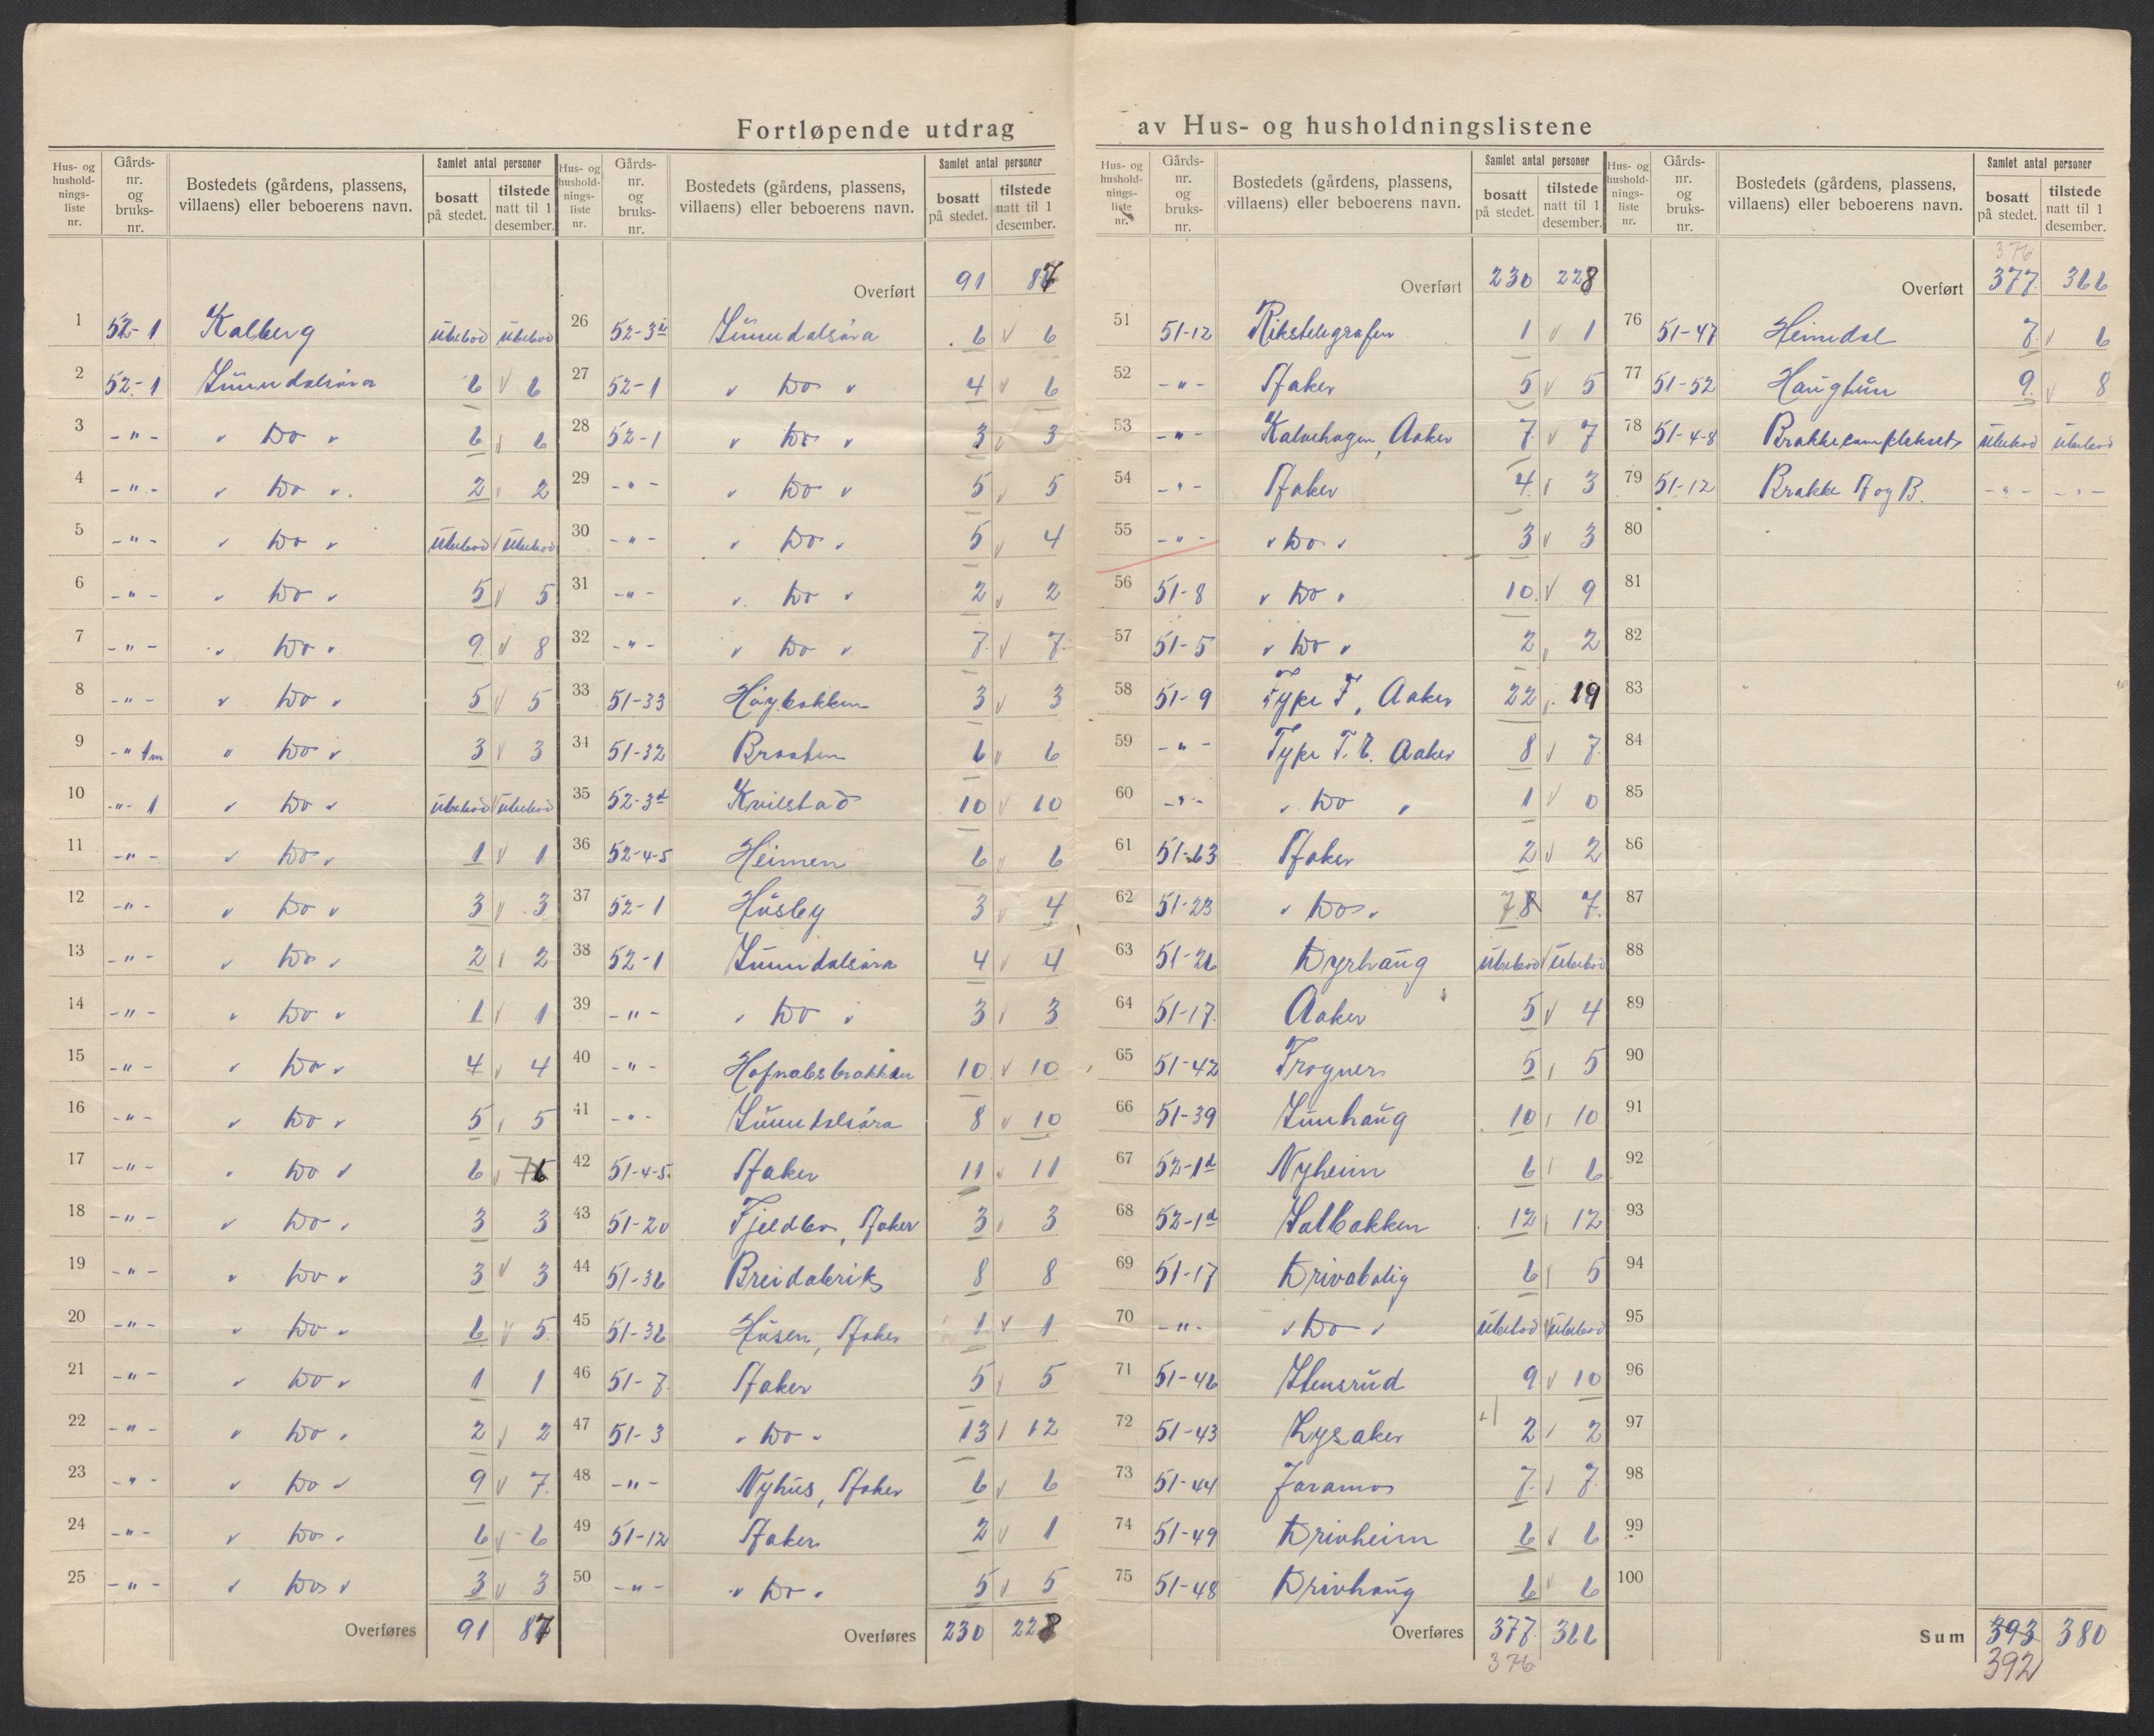 Fortløpende utdrag av Hus- og husholdningslistene
Hus- og husholdnings-liste nr. | Gårds-nr. og bruks-nr. | Bostedets (gårdens, plassens, villaens) eller beboerens navn. | Samlet antal personer | bosatt på stedet. | tilstede natt til 1 desember.
1 52-1 Kalberg Ubebod Ubebod
2 52-1 Sunndalsøra 6 6
3 -"- " Do " 6 6
4 -"- " Do " 2 2
5 -"- " Do " Ubebod Ubebod
6 -"- " Do " 5 5
7 -"- " Do " 9 8
8 -"- " Do " 5 5
9 -"- " Do " 3 3
10 -"- 1 " Do " Ubebod Ubebod
11 -"- " Do " 1 1
12 -"- " Do " 3 3
13 -"- " Do " 2 2
14 -"- " Do " 1 1
15 -"- " Do " 4 4
16 -"- " Do " 5 5
17 -"- " Do " 6 6
18 -"- " Do " 3 3
19 -"- " Do " 3 3
20 -"- " Do " 6 5
21 -"- " Do " 1 1
22 -"- " Do " 2 2
23 -"- " Do " 9 7
24 -"- " Do " 6 6
25 -"- " Do " 3 3
Overføres 91 87
Hus- og husholdnings-liste nr. | Gårds-nr. og bruks-nr. | Bostedets (gårdens, plassens, villaens) eller beboerens navn. | Samlet antal personer | bosatt på stedet. | tilstede natt til 1 desember.
Overført 91 87
26 52-3 Sunndalsøra 6 6
27 52-1 " Do " 4 6
28 52-1 " Do " 3 3
29 -"- " Do " 5 5
30 -"- " Do " 5 4
31 -"- " Do " 2 2
32 -"- " Do " 7 7
33 51-33 Høybakken 3 3
34 51-32 Braaten 6 6
35 52-3d Kvilstad 10 10
36 52-4-5 Heimen 6 6
37 52-1 Husby 3 4
38 52-1 Sunndalsøra 4 4
39 -"- " Do " 3 3
40 -"- 10 10
41 -"- Sunndalsøra 8 10
42 51-4-5 Aaker 11 11
43 51-20 Fjeldbo, Aaker 3 3
44 51-36 Breidablik 8 8
45 51-36 Husen, Aaker 1 1
46 51-7 Aaker 5 5
47 51-3 " Do " 13 12
48 -"- Nyhus, Aaker 6 6
49 51-12 Aaker 2 1
50 -"- " Do " 5 5
Overføres 230 228
Hus- og husholdnings-liste nr. | Gårds-nr. og bruks-nr. | Bostedets (gårdens, plassens, villaens) eller beboerens navn. | Samlet antal personer | bosatt på stedet. | tilstede natt til 1 desember.
Overført 230 228
51 51-12 Rikstelegrafen 1 1
52 -"- Aaker 5 5
53 -"- Kalvehagen, Aaker 7 7
54 -"- Aaker 4 3
55 -"- " Do " 3 3
56 51-8 " Do " 10 9
57 51-5 " Do " 2 2
58 51-9 Type F, Aaker 22 19
59 -"- Type Aaker 8 7
60 -"- " Do " 1 0
61 51-63 Aaker 2 2
62 51-23 " Do " 7 8 7
63 51-26 Dyrhaug Ubebod Ubebod
64 51-17 Aaker 5 4
65 51-42 Trogner 5 5
66 51-39 Sunhaug 10 10
67 52-1d Nyheim 6 6
68 52-1d Solbakken 12 12
69 51-17 Drivabolig 6 5
70 -"- " Do " Ubebod Ubebod
71 51-46 Stensrud 9 10
72 51-43 Lysaker +1 2 2
73 51-44 Jaramo 7 7
74 51-49 Drivheim 6 6
75 51-48 Drivhaug 6 6
Overføres 377 366
376
Hus- og husholdnings-liste nr. | Gårds-nr. og bruks-nr. | Bostedets (gårdens, plassens, villaens) eller beboerens navn. | Samlet antal personer | bosatt på stedet. | tilstede natt til 1 desember.
376
Overført 377 366
76 51-47 Heimdal 7 6
77 51-52 Haugtun 9 8
78 51-4-8 Brakkekomplekset Ubebod Ubebod
79 51-12 Brakke A og B. -"- -"-
80
81
82
83
84
85
86
87
88
89
90
91
92
93
94
95
96
97
98
99
100
Sum 393 380
392